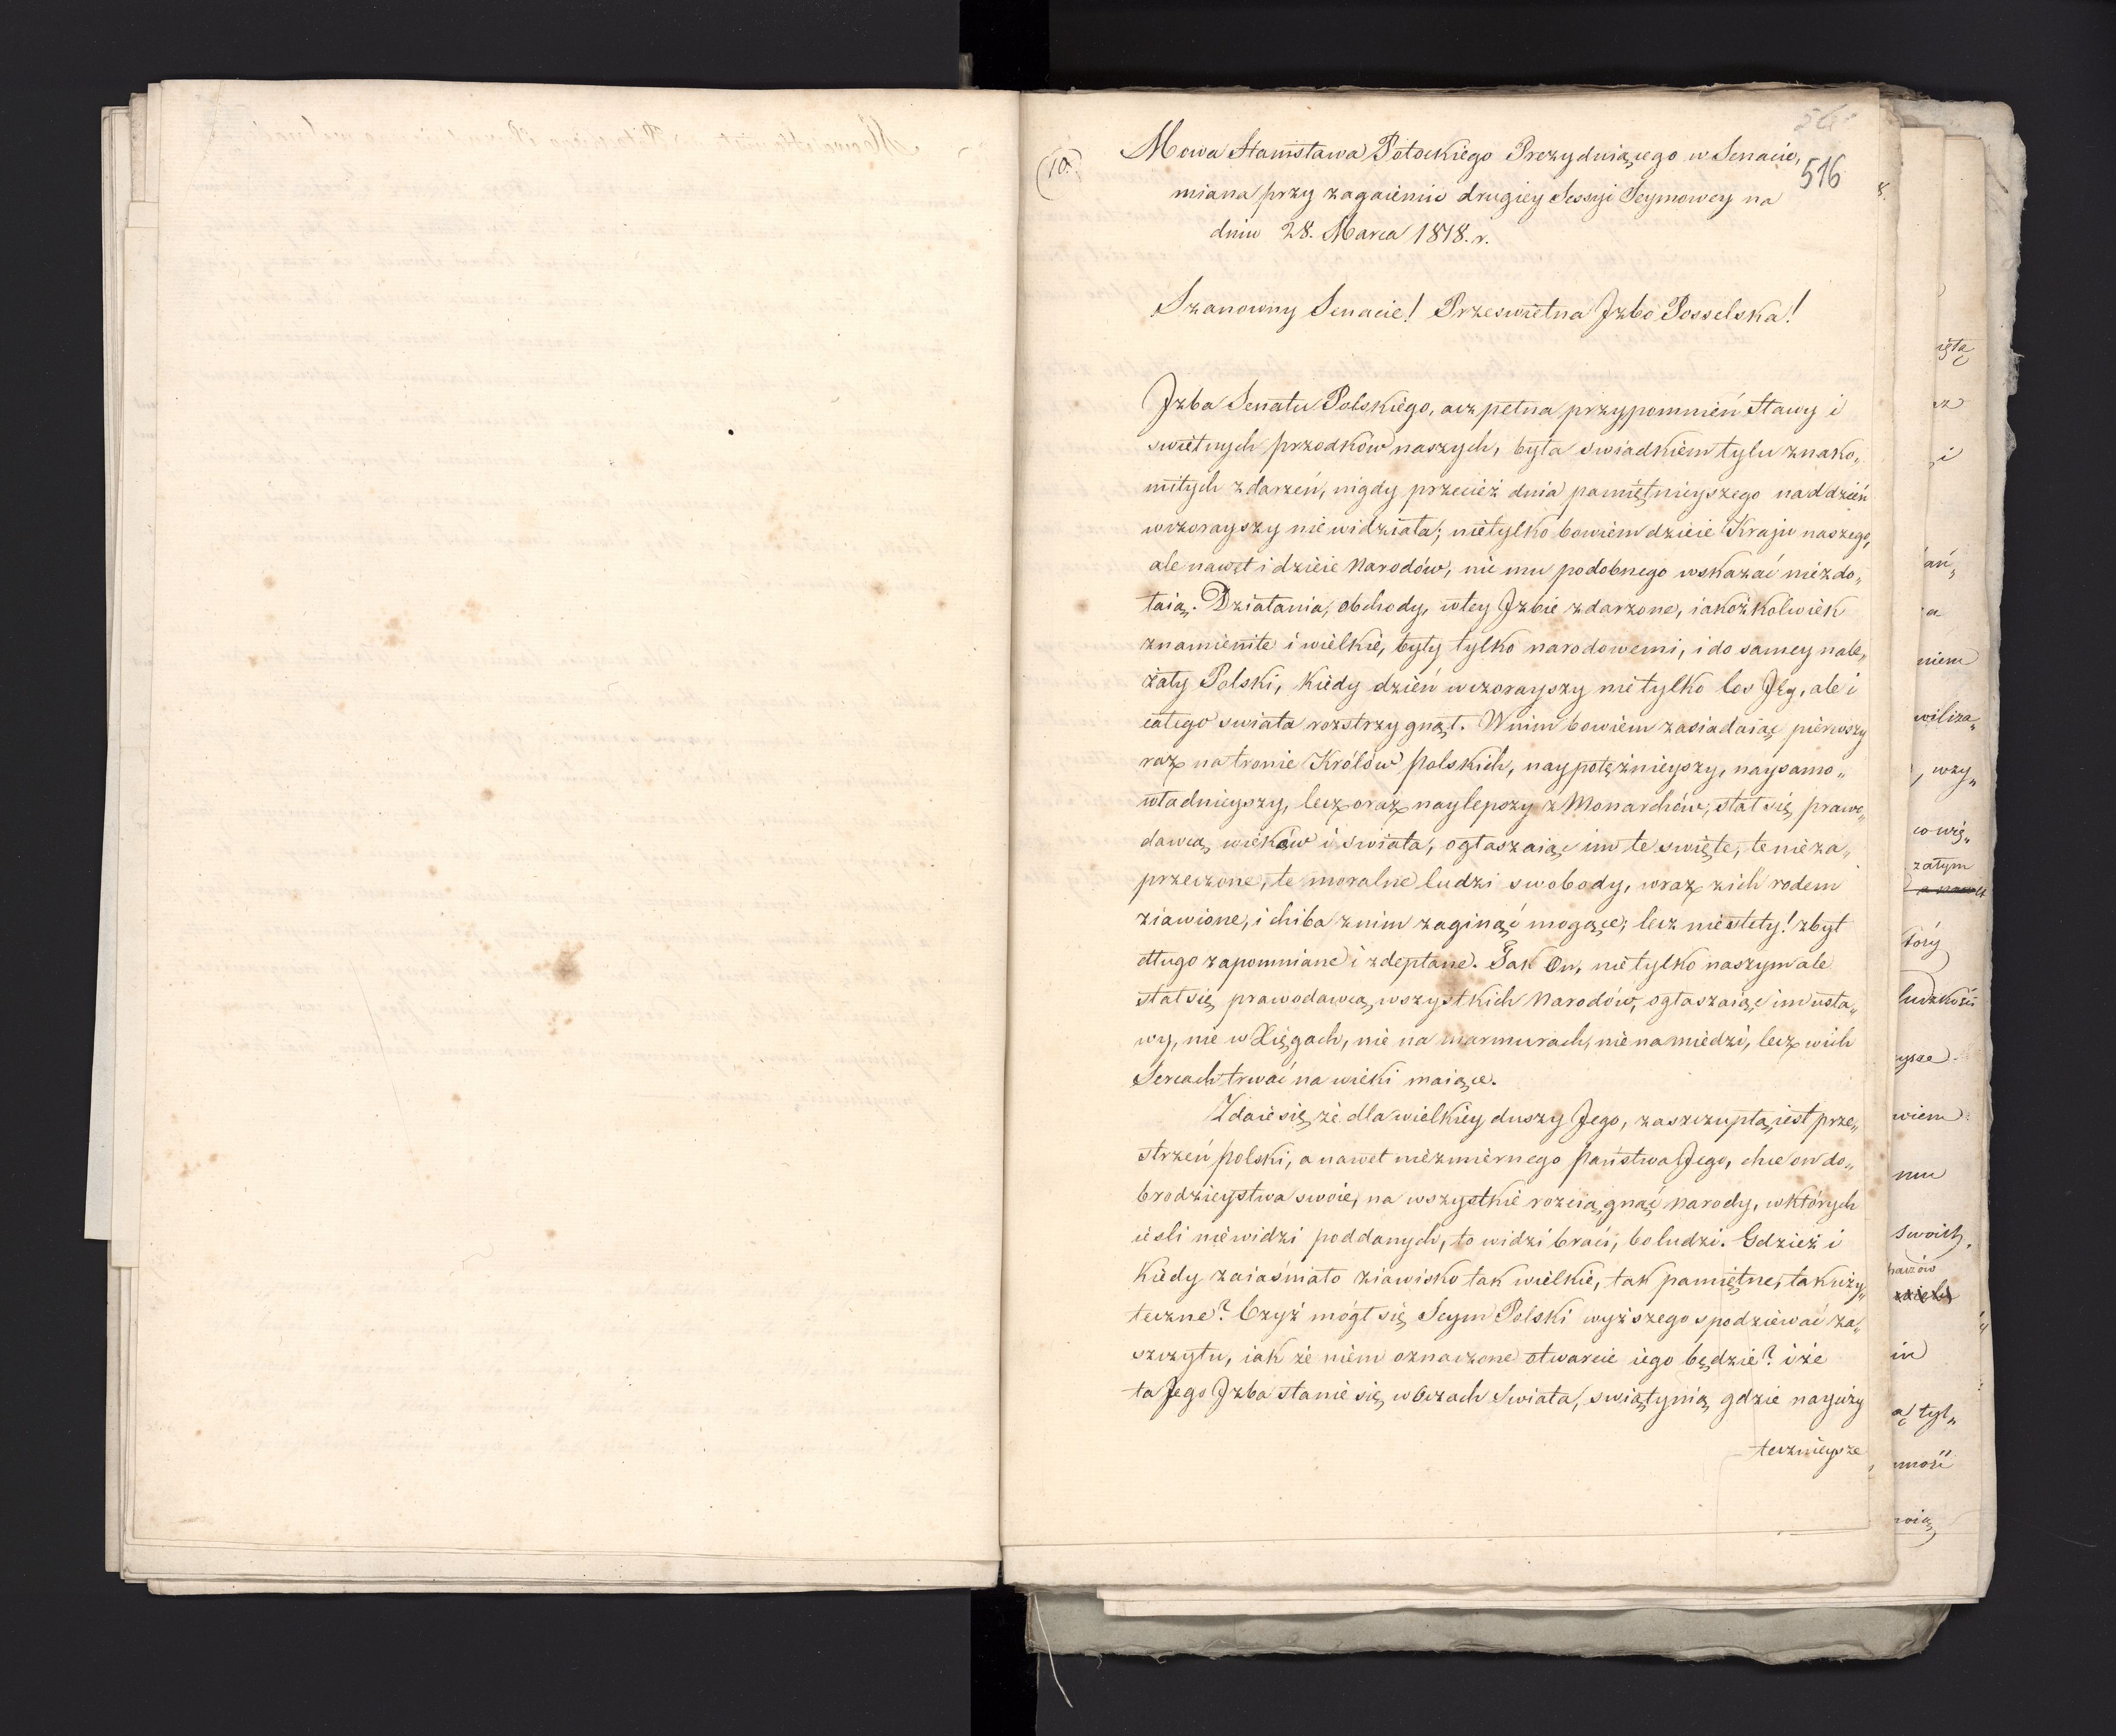 516
(10.)
Mowa Stanisława Potockiego Prezyduiącego w Senacie,
miana przy zagaieniu drugiey Sessyi Seymowey na
dniu 28. Marca 1818. r.
Szanowny Senacie! Przeswietna Jzbo Posselska!
Jzba Senatu Polskiégo, acz pełna przypomnień Sławy i
swietnych przodków naszych, była swiadkiem tylu znako„
mitych zdarzeń, nigdy przecież dnia pamiętnieyszego nad dzień
wczorayszy nie widziała; nietylko bowiem dzieie Kraju naszego,
ale nawet i dzieie Narodów, nic mu podobnego wskazać niezdo„
łaią. Działania, obchody, w tey Jzbie zdarzone, iakożkolwiek
znamienite i wielkie, były tylko narodowemi, i do samey nale„
żały Polski, kiedy dzień wczorayszy nietylko los Jéy, ale i
całego swiata rozstrzygnął. W nim bowiem zasiadaiąc pierwszy
raz na tronie Królów Polskich, naypotężnieyszy, naysamo„
władnieyszy, lecz oraz naylepszy z Monarchów, stał się prawo„
dawcą wieków i swiata, ogłaszaiąc im te swięte, te nieza„
przeczone, te moralne ludzi swobody, wraz z ich rodem
ziawione, i chiba z nim zaginąć mogące; lecz niestety! zbyt
długo zapomniane i zdeptane. Tak On, nietylko naszym ale
stał się prawodawcą wszystkich Narodów, ogłaszaiąc im usta„
wy, nie w Xięgach, nie na marmurach, nie na miedzi, lecz w ich
Sercach trwać na wieki maiące.
Zdaie się, że dla wielkiey duszy Jego, za szczupłą iest prze„
strzeń Polski, a nawet niezmiernego Państwa Jego, chce on do„
brodzieystwa swoie, na wszystkie rozciągnąć Narody, w których
ieśli niewidzi poddanych, to widzi braci, bo ludzi. Gdzież i
kiedy zaiaśniało ziawisko tak wielkie, tak pamiętne, tak uży„
teczne? Czyż mógł się Seym Polski wyższego spodziewać za„
szczytu, iak że niem oznaczone otwarcie iego będzie? i że
ta Jego Jzba stanie się w Oczach Swiata, swiątynią gdzie nayuży
tecznieysze